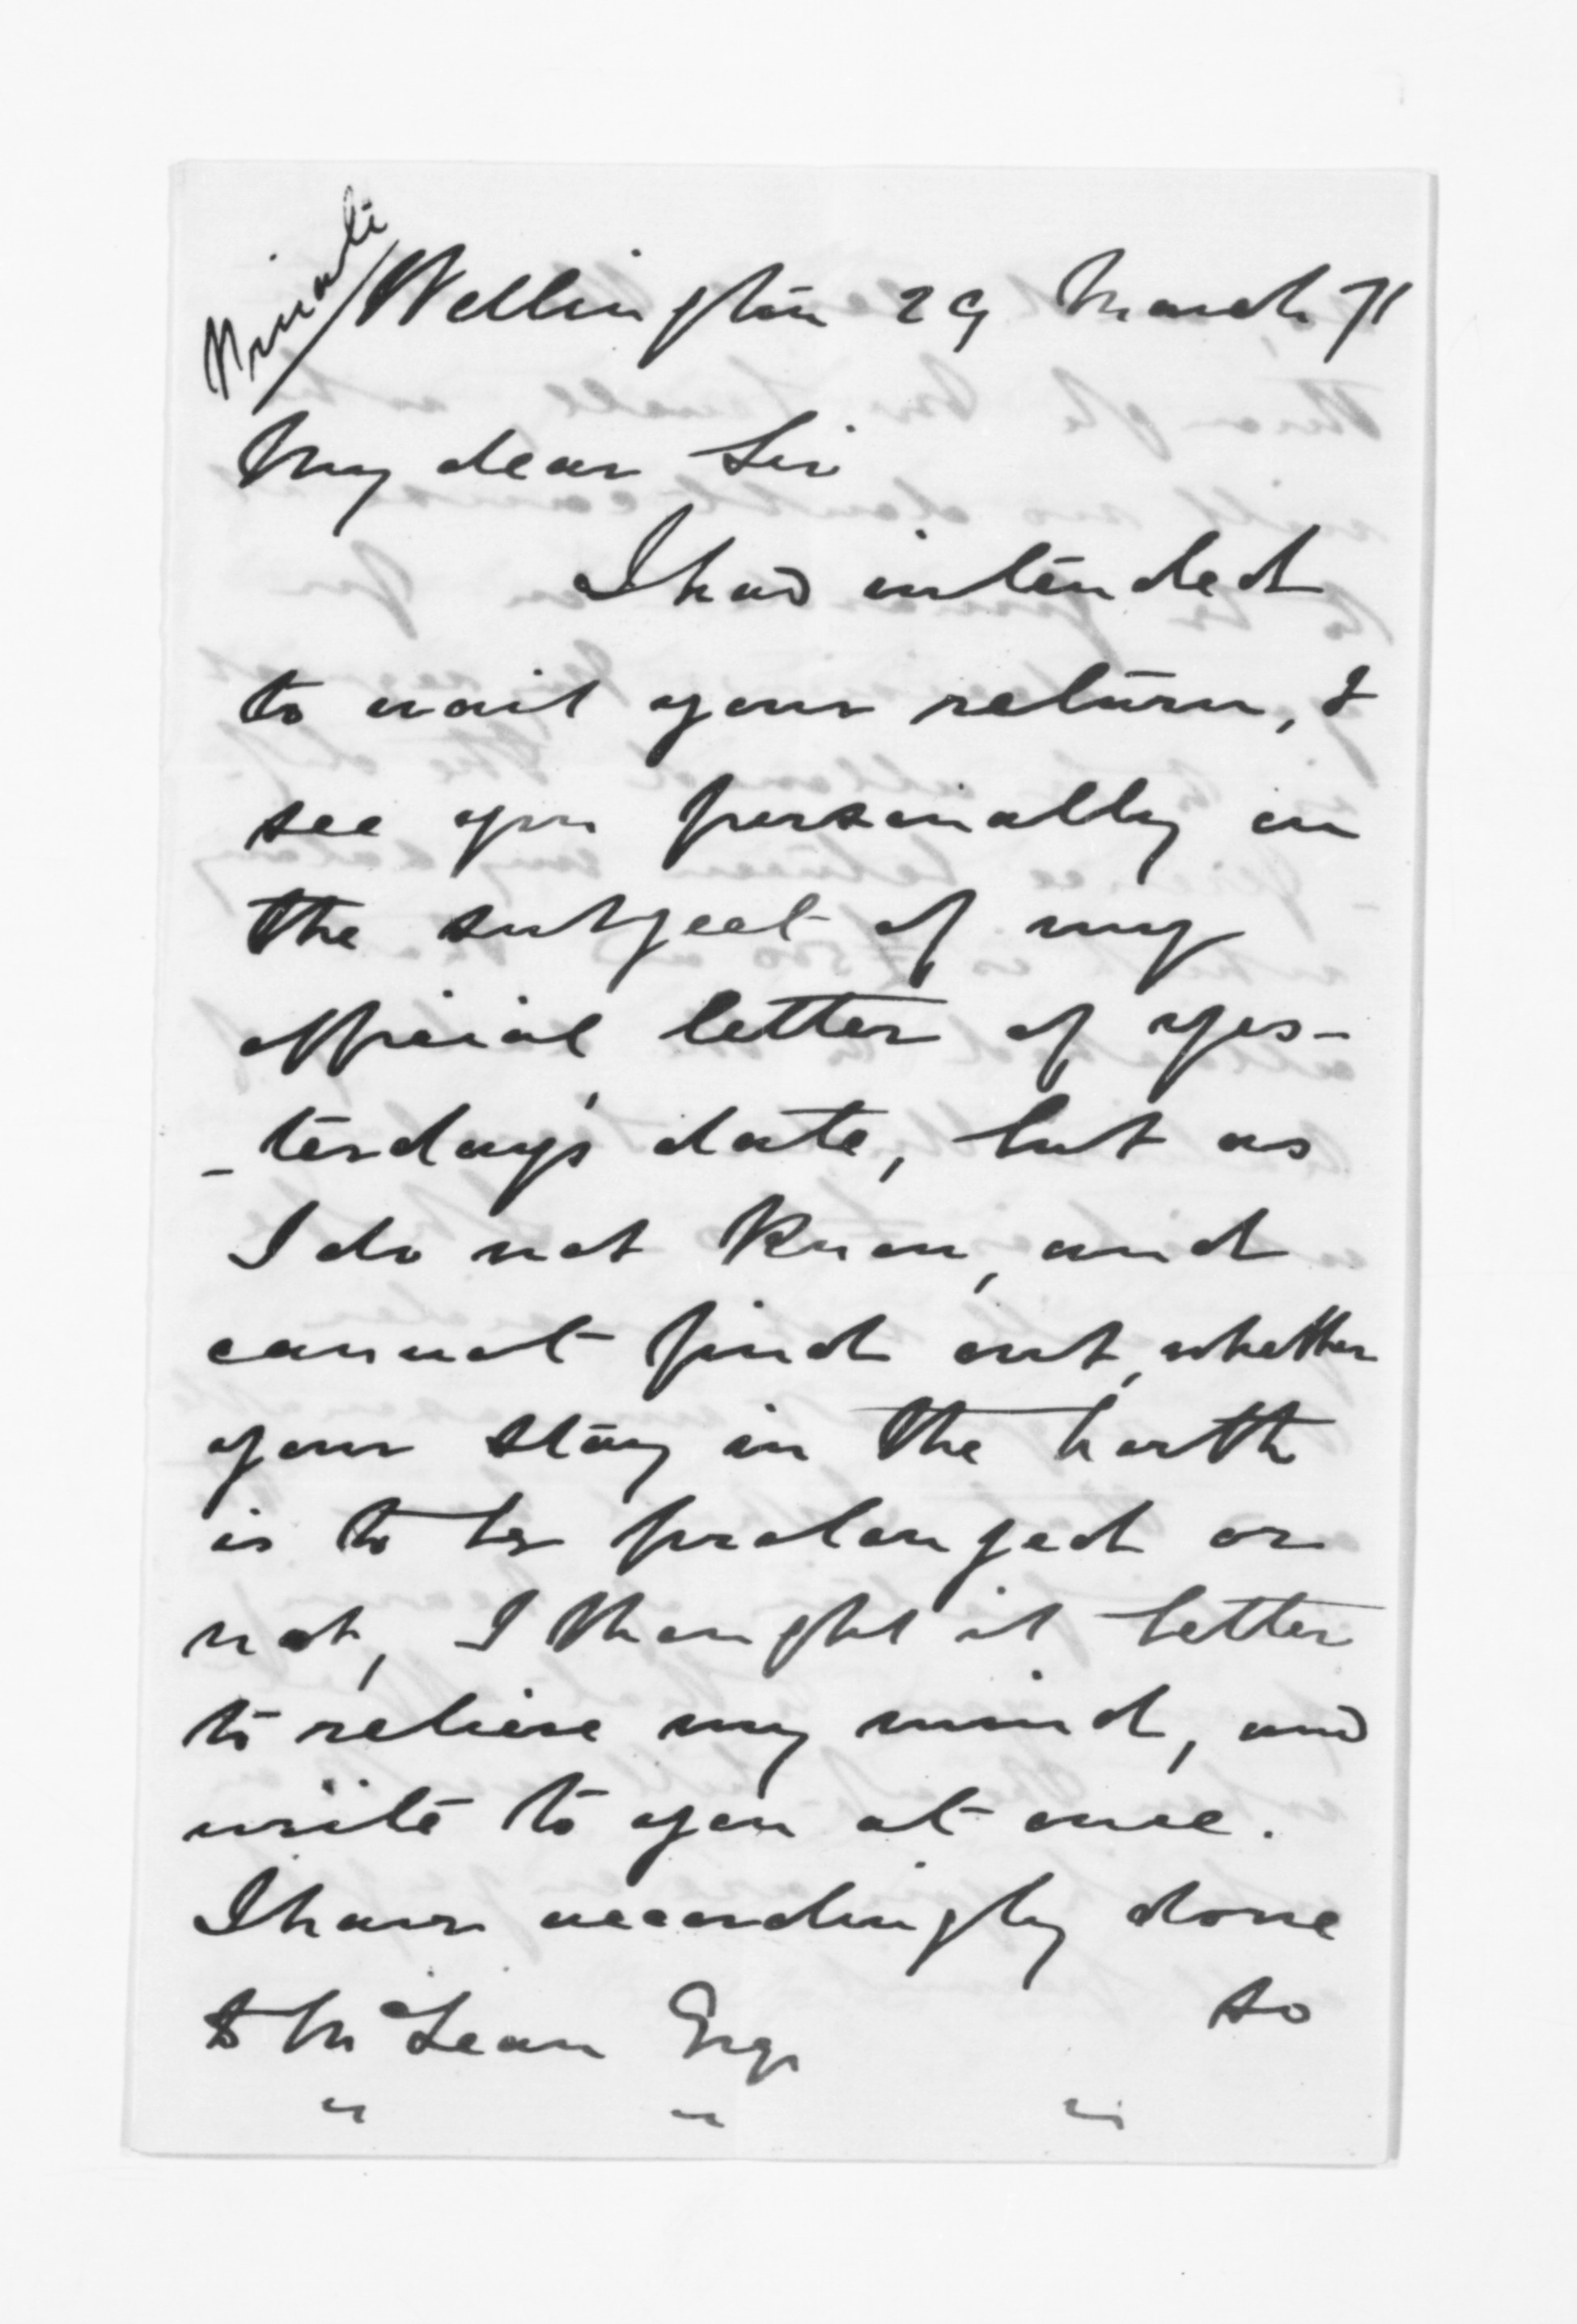 Private
Wellington 29 March 71
My dear Sir
I had intended
to wait your return, &
see you personally on
the subject of my
official letter of yes-
-terday's date, but as
I do not know, and
cannot find out, whether
your stay in the North
is to be prolonged or
not, I thought it better
to relieve my mind, and
write to you at once.
I have accordingly done
so
D McLean Esqr
" " "